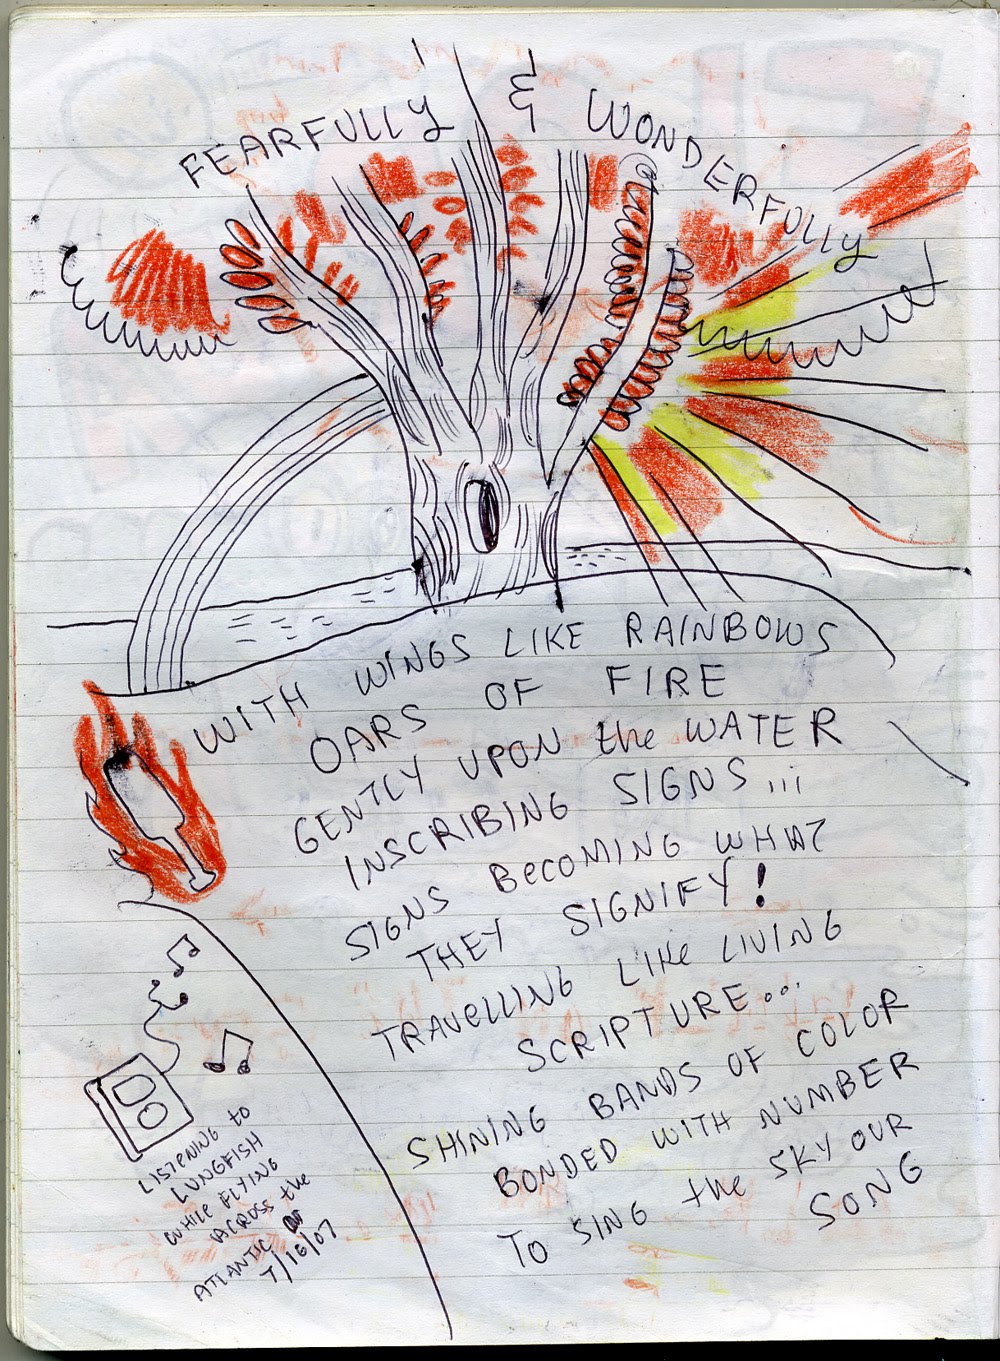 FEARFULLY & WONDERFULLY
WITH WINGS LIKE RAINBOWS
OARS OF FIRE
GENTLY UPON the WATER
INSCRIBING SIGNS...
SIGNS BecOMING WHAT
THEY SIGNIFY!
TRAVELLING LIKe LIVING
SCRIPTURE...
SHINING BANDS OF COLOR
BONDED WITH NUMBER
TO SING the SKY OUR
SONG
LISTENING to
LUNGFISH
WHILE FLYING
ACROSS the
ATLANTIC
7/16/07